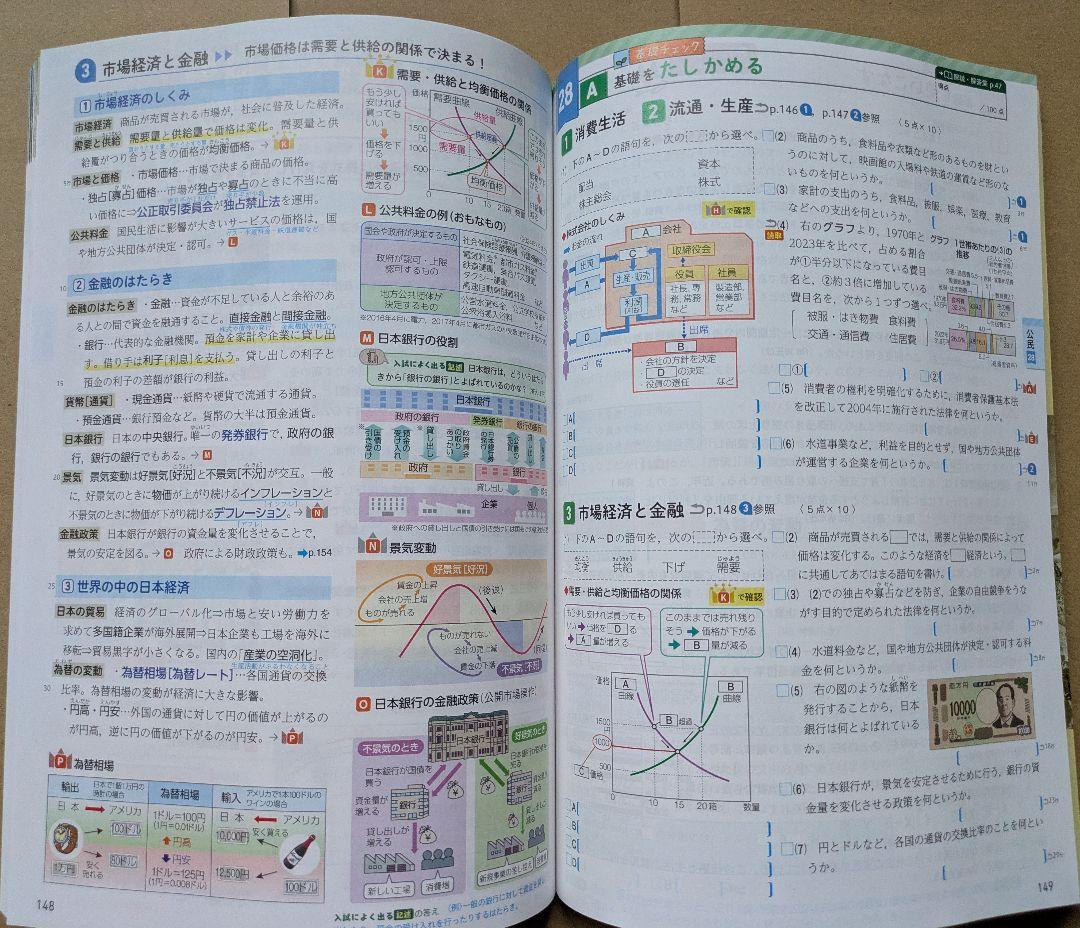 3 市場経済と金融 ▶▶ 市場価格は需要と供給の関係で決まる！
1 市場経済のしくみ
市場経済 商品が売買される市場が，社会に普及した経済。
需要と供給 需要量と供給量で価格は変化。需要量と供
給量がつり合うときの価格が均衡価格。→ K
市場と価格 ・市場価格…市場で決まる商品の価格。
・独占[寡占]価格…市場が独占や寡占のときに不当に高
い価格に⇒公正取引委員会が独占禁止法を運用。
公共料金 国民生活に影響が大きいサービスの価格は，国
や地方公共団体が決定・認可。→ L
2 金融のはたらき
金融のはたらき ・金融…資金が不足している人と余裕のあ
る人との間で資金を融通すること。直接金融と間接金融。
・銀行…代表的な金融機関。預金を家計や企業に貸し出
す。借り手は利子[利息]を支払う。貸し出しの利子と
15 預金の利子の差額が銀行の利益。
貨幣[通貨] ・現金通貨…紙幣や硬貨で流通する通貨。
・預金通貨…銀行預金など。貨幣の大半は預金通貨。
日本銀行 日本の中央銀行。唯一の発券銀行で，政府の銀
行，銀行の銀行でもある。→ M
20 景気 景気変動は好景気[好況]と不景気[不況]が交互。一般
に，好景気のときに物価が上がり続けるインフレーションと
不景気のときに物価が下がり続けるデフレーション。→ N
金融政策 日本銀行が銀行の資金量を変化させることで，
景気の安定を図る。→ O 政府による財政政策も。➡p.154
25 3 世界の中の日本経済
日本の貿易 経済のグローバル化⇒市場と安い労働力を
求めて多国籍企業が海外展開⇒日本企業も工場を海外に
移転⇒貿易黒字が小さくなる。国内の「産業の空洞化」。
為替の変動 ・為替相場[為替レート]…各国通貨の交換
30 比率。為替相場の変動が経済に大きな影響。
・円高・円安…外国の通貨に対して円の価値が上がるの
が円高，逆に円の価値が下がるのが円安。→ P
P 為替相場
輸出 日本で1個1万円の時計の場合
為替相場
輸入 アメリカで1本100ドルのワインの場合
日本 アメリカ
1ドル＝100円
(1円＝0.01ドル)
日本 アメリカ
100ドル
円高
10,000円 安く買える
1万円
80ドル
安く売れる
円安
1ドル＝125円
(1円＝0.008ドル)
12,500円
100ドル
148
K 需要・供給と均衡価格の関係
もう少し安ければ買ってもいい
価格を下げる
需要量が増える
価格
需要曲線
供給曲線
供給量
需要量
均衡価格
1500円
1000
500
0 10 15 20箱 数量
L 公共料金の例（おもなもの）
国会や政府が決定するもの
政府が認可・上限認可するもの
地方公共団体が決定するもの
M 日本銀行の役割
入試によく出る 記述 日本銀行は，どういうはたら
きから「銀行の銀行」とよばれているのかな？
日本銀行
政府の銀行 発券銀行 銀行の銀行
政府 銀行
貸し出し
企業 個人
N 景気変動
好景気[好況]
賃金の上昇
会社の売上増
ものが売れる
ものが売れない
会社の売上減
賃金の下落
不景気[不況]
O 日本銀行の金融政策（公開市場操作）
日本銀行
不景気のとき
好景気のとき
日本銀行が国債を買う
資金量が増える
銀行
貸し出しが増える
新しい工場
消費増
入試によく出る 記述 の答え （例）一般の銀行に対して
28 A 基礎チェック
基礎をたしかめる
解説・解答集 p.47
得点 ／100点
1 消費生活 2 流通・生産 ⊃p.146 1，p.147 2 参照 （5点×10）
下のA～Dの語句を，次の から選べ。
資本
配当 株式
株主総会
H で確認
◆株式会社のしくみ
A 会社
出資
A
C
生産・販売
利潤
D
取締役会
役員 社員
社長，専務，常務など
製造部，営業部など
出席
B
会社の方針を決定
・ D の決定
・役員の選任 など
A[ ]
B[ ]
C[ ]
D[ ]
(2) 商品のうち，食料品や衣類など形のあるものを財とい
うのに対して，映画館の入場料や鉄道の運賃など形のな
いものを何というか。
(3) 家計の支出のうち，食料品，被服，娯楽，医療，教育
などへの支出を何というか。
(4) 右のグラフより，1970年と
2023年を比べて，占める割合
が①半分以下になっている費目
名と，②約3倍に増加している
費目名を，次から1つずつ選べ。
被服・はき物費 食料費
交通・通信費 住居費
グラフ 1世帯あたりの(3)の推移
①[ ] ②[ ]
(5) 消費者の権利を明確化するために，消費者保護基本法
を改正して2004年に施行された法律を何というか。
(6) 水道事業など，利益を目的とせず，国や地方公共団体
が運営する企業を何というか。
公民 28
3 市場経済と金融 ⊃p.148 3 参照 （5点×10）
下のA～Dの語句を，次の から選べ。
供給 下げ 需要
◆需要・供給と均衡価格の関係
K で確認
D る
A 量が増える
このままでは売れ残り
そう ➡ 価格が下がる
➡ B 量が減る
価格
A 曲線
B 曲線
B 超過
1500円
1000
500
C 価格
0 10 15 20箱 数量
A[ ]
B[ ]
C[ ]
D[ ]
(2) 商品が売買される□では，需要と供給の関係によって
価格は変化する。このような経済を□経済という。□
に共通してあてはまる語句を書け。
(3) (2)での独占や寡占などを防ぎ，企業の自由競争をうな
がす目的で定められた法律を何というか。
(4) 水道料金など，国や地方公共団体が決定・認可する料
金を何というか。
(5) 右の図のような紙幣を
発行することから，日本
銀行は何とよばれている
か。
10000
(6) 日本銀行が，景気を安定させるために行う，銀行の資
金量を変化させる政策を何というか。
(7) 円とドルなど，各国の通貨の交換比率のことを何とい
うか。
149